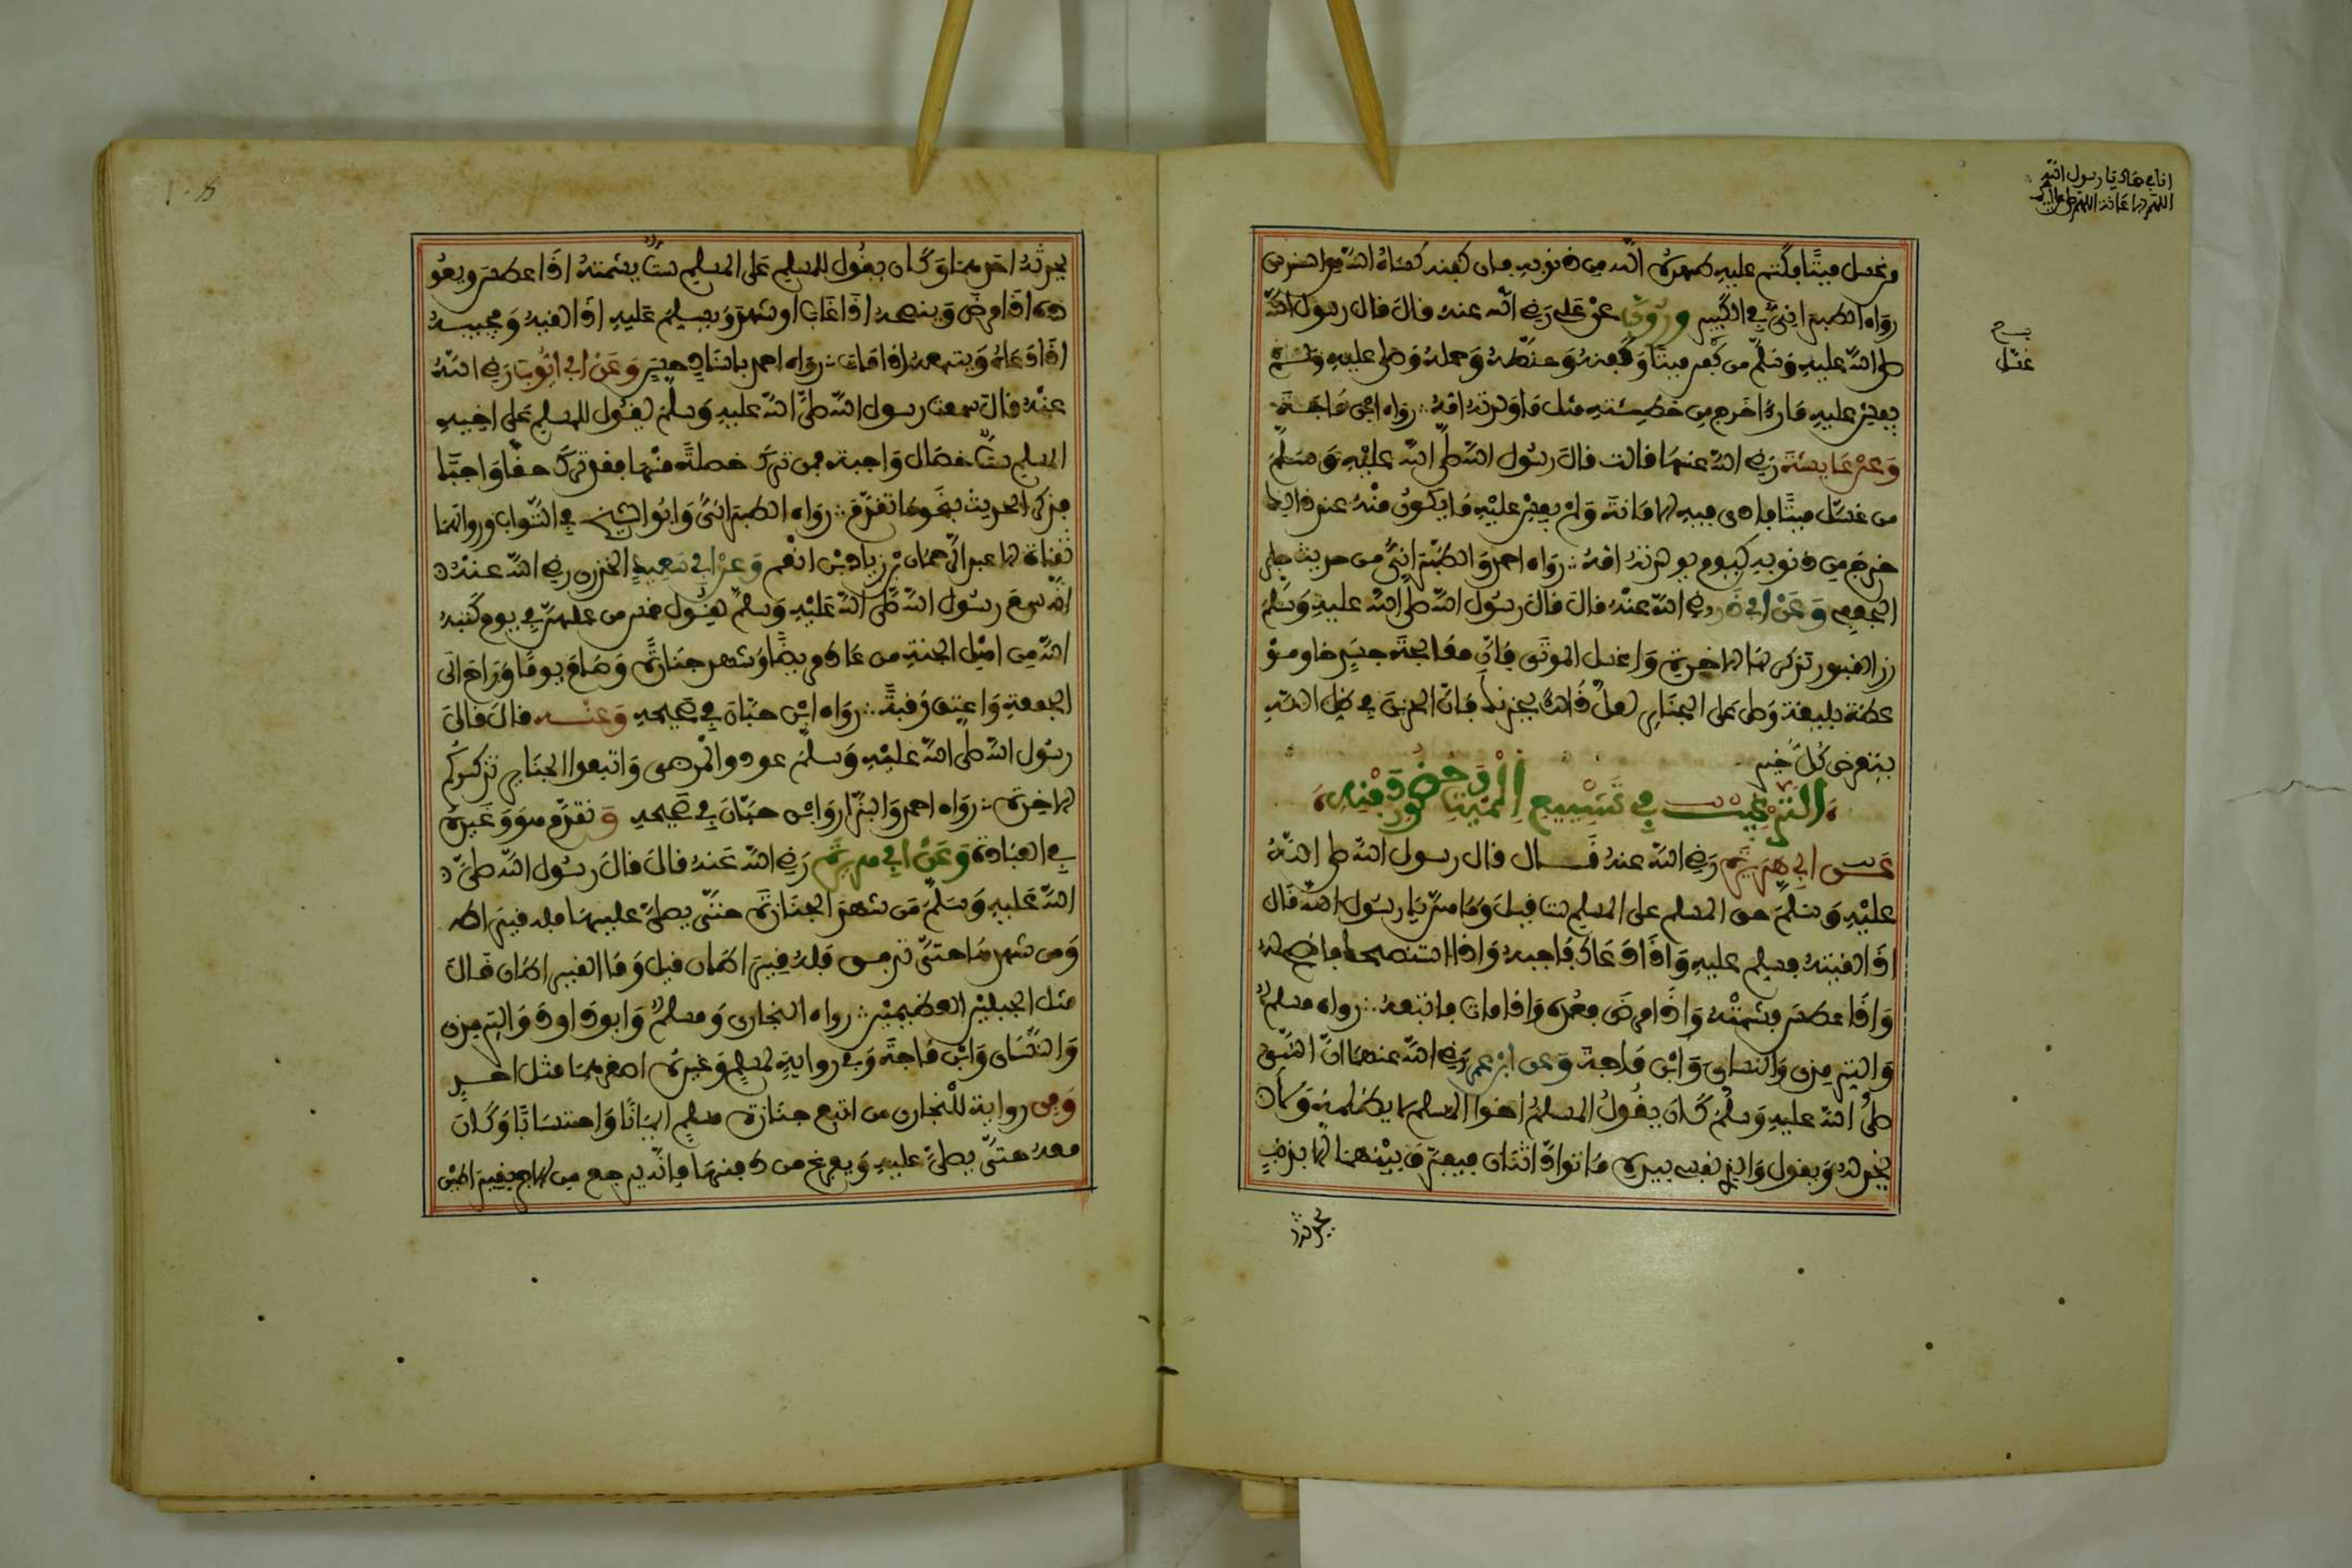 انا في حماك يا رسول الله
من غسل ميتا فكتم عليه طهره الله من ذنوبه فان كفنه كساه الله من السندس
رواه الطبراني في الكبير وروي عن علي رضي الله عنه قال قال رسول الله
صلى الله عليه وسلم من غسل ميتا وكفنه وحنطه وحمله وصلى عليه ولم
يفش عليه ما رءا خرج من خطيئته مثل ما ولدته امه رواه ابن ماجة
وعن عايشة رضي الله عنها قالت قال رسول الله صلى الله عليه وسلم
من غسل ميتا فادى فيه الامانة ولم يفش عليه ما يكون منه عند ذالك
خرج من ذنوبه كيوم ولدته امه رواه احمد والطبراني من حديث جابر
الجعفي وعن ابي ذر رضي الله عنه قال قال رسول الله صلى الله عليه وسلم
زر القبور تذكر بها الاخرة واغسل الموتى فان معالجة جسد خاو موعظة
بليغة وصل على الجنايز لعل ذالك يحزنك فان الحزين في ظل الله
يتعرض كل خير
الترغيب في تشييع الميت وحضور دفنه
عن ابي هريرة رضي الله عنه قال قال رسول الله صلى الله
عليه وسلم حق المسلم على المسلم ست قيل وما هن يا رسول الله قال
اذا لقيته فسلم عليه واذا دعاك فاجبه واذا استنصحك فانصح له
واذا عطس فشمته واذا مرض فعده واذا مات فاتبعه رواه مسلم
والترمذي والنسائي وابن ماجة وعن ابن عمر رضي الله عنهما ان النبي
صلى الله عليه وسلم كان يقول المسلم اخو المسلم لا يظلمه ولا
يخذله ويقول والذي نفسي بيده ما تواد اثنان فيفرق بينهما الا بذنب
يحدثه
غسل
يحدثه احدهما وكان يقول للمسلم على المسلم ست يشمته اذا عطس ويعو
ده اذا مرض وينصحه اذا غاب او شهد ويسلم عليه اذا لقيه ويجيبه
اذا دعاه ويتبعه اذا مات رواه احمد باسناد حسن وعن ابي ايوب رضي الله
عنه قال سمعت رسول الله صلى الله عليه وسلم يقول للمسلم على اخيه
المسلم ست خصال واجبة فمن ترك خصلة منها فقد ترك حقا واجبا
فذكر الحديث بنحو ما تقدم رواه الطبراني وابو الشيخ في الثواب ورواتهما
ثقاة الا عبد الرحمان بن زياد بن انعم وعن ابي سعيد الخدري رضي الله عنه
انه سمع رسول الله صلى الله عليه وسلم يقول خمس من عملهن في يوم كتبه
الله من اهل الجنة من عاد مريضا وشهد جنازة وصام يوما وراح الى
الجمعة واعتق رقبة رواه ابن حبان في صحيحه وعنه قال قال
رسول الله صلى الله عليه وسلم عودوا المرضى واتبعوا الجنايز تذكركم
الاخرة رواه احمد والبزار وابن حبان في صحيحه وتقدم هو وغيره
في العيادة وعن ابي هريرة رضي الله عنه قال قال رسول الله صلى
الله عليه وسلم من شهد الجنازة حتى يصلى عليها فله قيراط
ومن شهدها حتى تدفن فله قيراطان قيل وما القيراطان قال
مثل الجبلين العظيمين رواه البخاري ومسلم وابو داود والترمذي
والنسائي وابن ماجة وفي رواية لمسلم وغيره اصغرهما مثل احد
وفي رواية للبخاري من اتبع جنازة مسلم ايمانا واحتسابا وكان
معه حتى يصلى عليه ويفرغ من دفنها فانه يرجع من الاجر بقيراطين